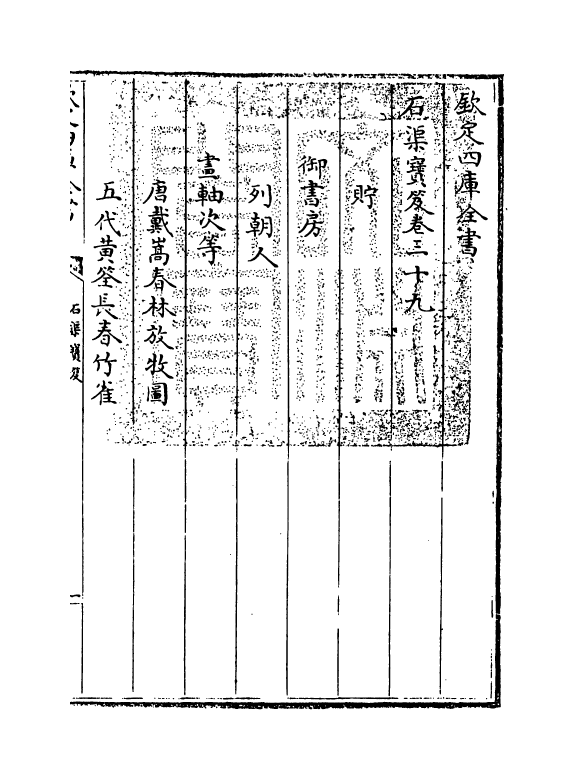 欽定四庫全書
石渠寶笈卷三十九
貯
御書房
列朝人
畫軸次等
唐戴嵩春林放牧圖
五代黄筌長春竹雀
石渠寶笈
一